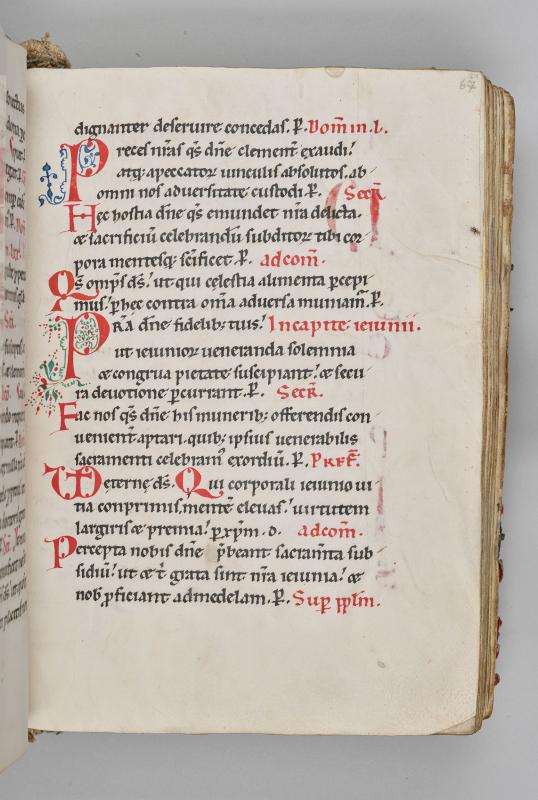 67
dignanter deseruire concedas. P. Domin. L.
Preces nr̄as q̄s dn̄e clement̄ exaudi.
atq; apeccatoꝝ uinculis absolutos. ab
omni nos aduersitate custodi. P. Secr̄.
Hęc hostia dn̄e q̄s emundet nr̄a delicta.
& sacrificiū celebrandū subditoꝝ tibi cor
pora mentesq; sc̄ificet. P. adcom̄.
Q̄s omp̄s d̄s. ut qui celestia alimenta p̄cepi
mus. p̄ hec contra om̄ia aduersa muniam᷑. P.
PR̄A dn̄e fidelib; tuis. In capite ieiunii.
ut ieiunioꝝ ueneranda solemnia
& congrua pietate suscipiant. & secu
ra deuotione p̄currant. P. Secr̄.
Fac nos q̄s dn̄e his munerib; offerendis con
uenient̄ aptari. quib; ipsius uenerabilis
sacramenti celebram᷒ exordiū. P. PREF̄.
VD eternę d̄s. Qui corporali ieiunio ui
tia conprimis. mentē eleuas. uirtutem
largiris & premia. p̄ xp̄m. d. adcom̄.
Percepta nobis dn̄e p̄beant sacram̄ta sub
sidiū. ut & t̄ grata sint nr̄a ieiunia. &
nob̄ p̄ficiant admedelam. P. Sup̄ pp̄lm̄.